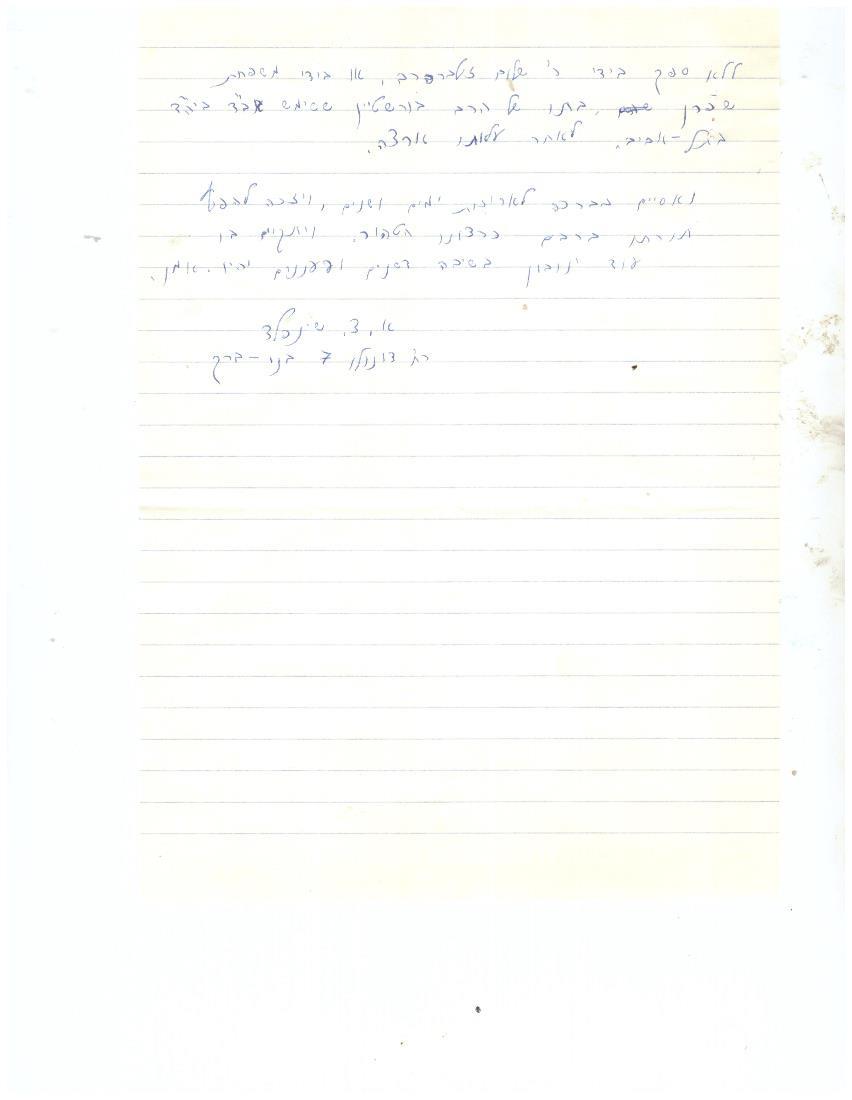 ללא ספק בידי ר' שלום זילברברג, או בידי משפחת
שפרן בתו של הרב בורשטיין ששימש אב"ד ביה"ד
בתל-אביב. לאחר עלותו ארצה.
ואסיים בברכה לאריכות ימים ושנים, ויזכה להפיץ
תורתו ברבים כרצונו הטהור. ויתקיים בו
עוד ינובון בשיבה דשנים ורעננים יהיו. אמן.
א. צ. שינפלד
רח' דונולו 7 בני-ברק